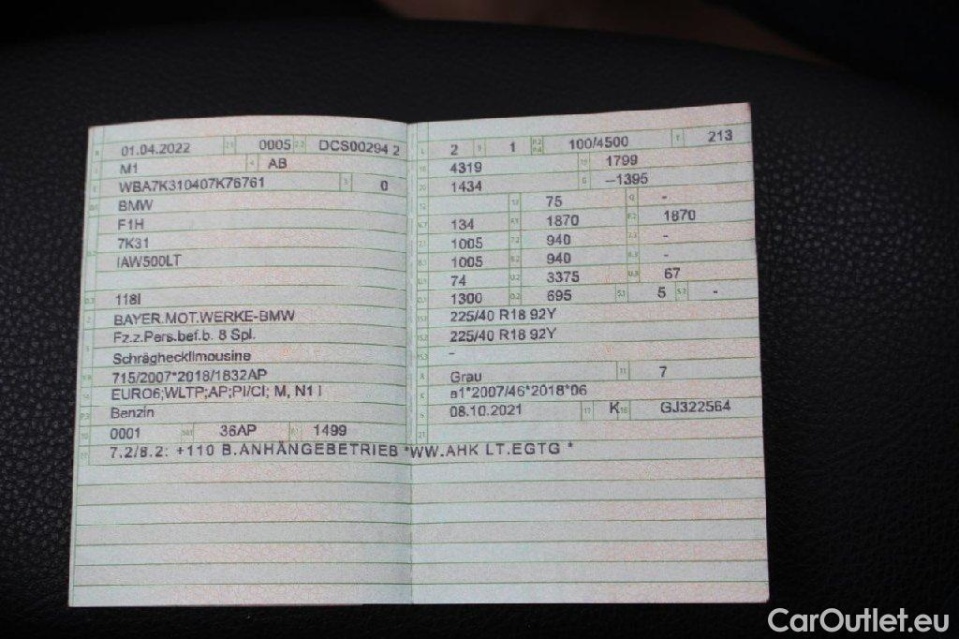 01.04.2022 0005 DCS00294 2
M1 AB
WBA7K310407K76761 0
BMW
F1H
7K31
IAW500LT
118I
BAYER.MOT.WERKE-BMW
Fz.z.Pers.bef.b. 8 Spl.
Schräghecklimousine
715/2007*2018/1832AP
EURO6;WLTP;AP;PI/CI; M, N1 I
Benzin
0001 36AP 1499
7.2/8.2: +110 B.ANHÄNGEBETRIEB *WW.AHK LT.EGTG *
2 1 100/4500 213
4319 1799
1434 –1395
75 -
134 1870 1870
1005 940 -
1005 940 -
74 3375 67
1300 695 5 -
225/40 R18 92Y
225/40 R18 92Y
-
Grau 7
e1*2007/46*2018*06
08.10.2021 K GJ322564
CarOutlet.eu